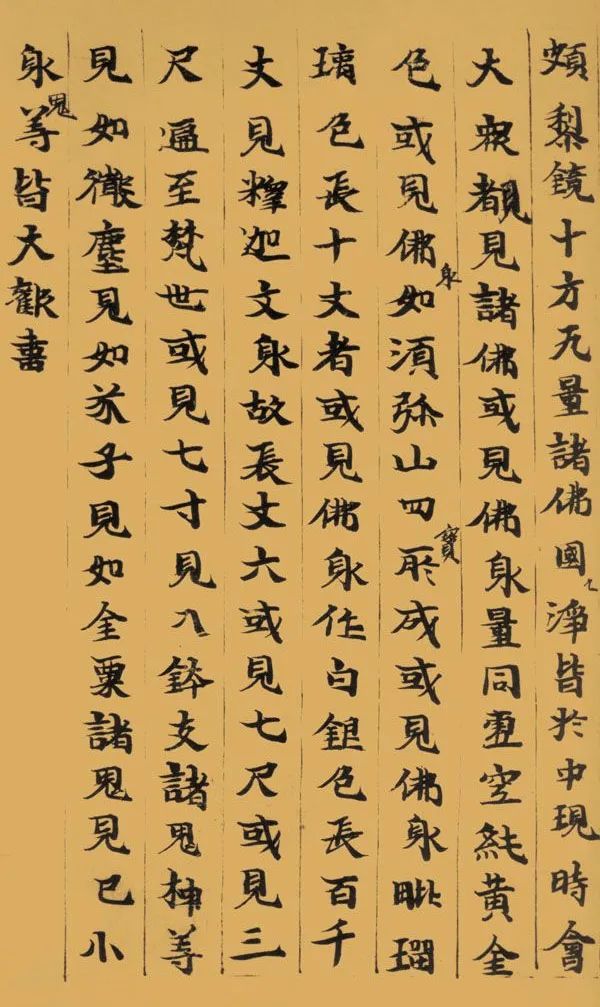 頗梨鏡十方无量諸佛國淨皆於中現時會
大眾覩見諸佛或見佛身量同虛空純黃金
色或見佛身如須弥山四寶所成或見佛身毗瑠
璃色長十丈者或見佛身作白銀色長百千
丈見釋迦文身故長丈六或見七尺或見三
尺遍至梵世或見七寸見入鉢支諸鬼神等
見如微塵見如芥子見如金粟諸鬼見已小
身鬼等皆大歡喜